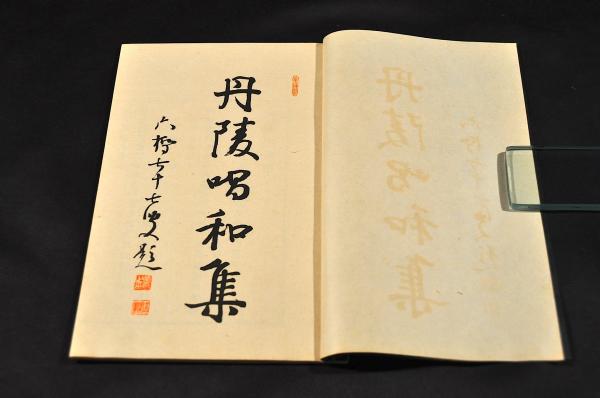 丹陵唱和集
六橋七十七叟題